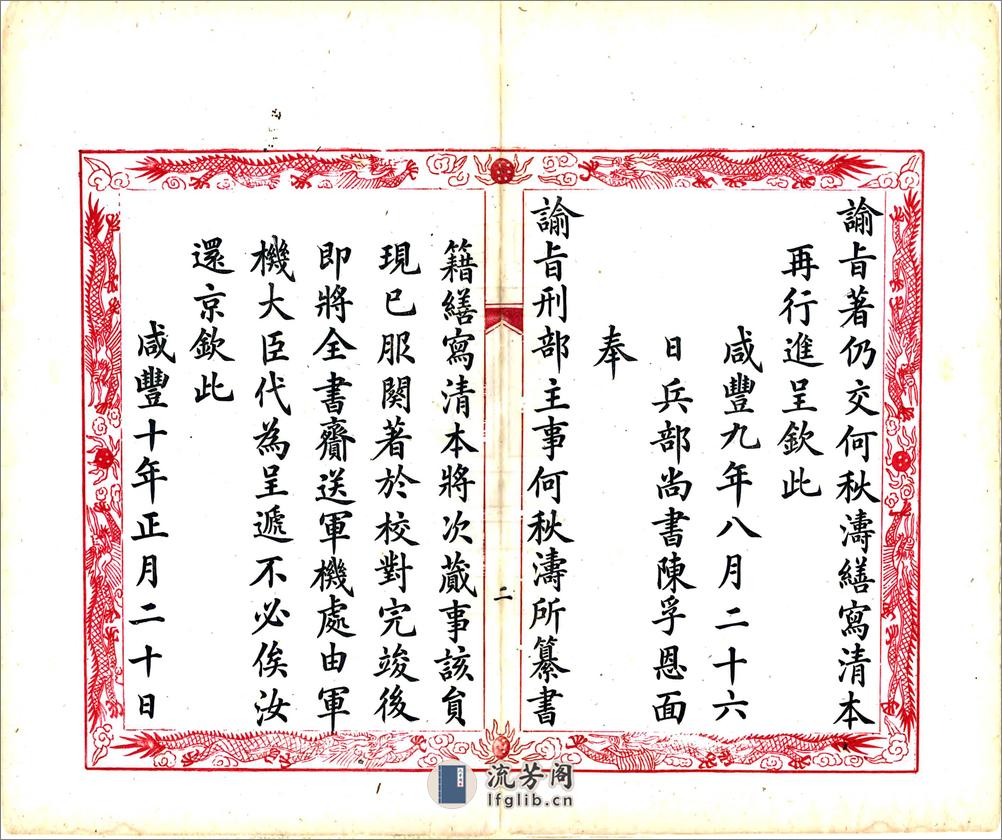 諭旨著仍交何秋濤繕寫清本
再行進呈欽此
咸豐九年八月二十六
日兵部尚書陳孚恩面
奉
諭旨刑部主事何秋濤所纂書
二
籍繕寫清本將次蕆事該員
現已服闋著於校對完竣後
即將全書齎送軍機處由軍
機大臣代為呈遞不必俟汝
還京欽此
咸豐十年正月二十日
流芳阁
lfglib.cn